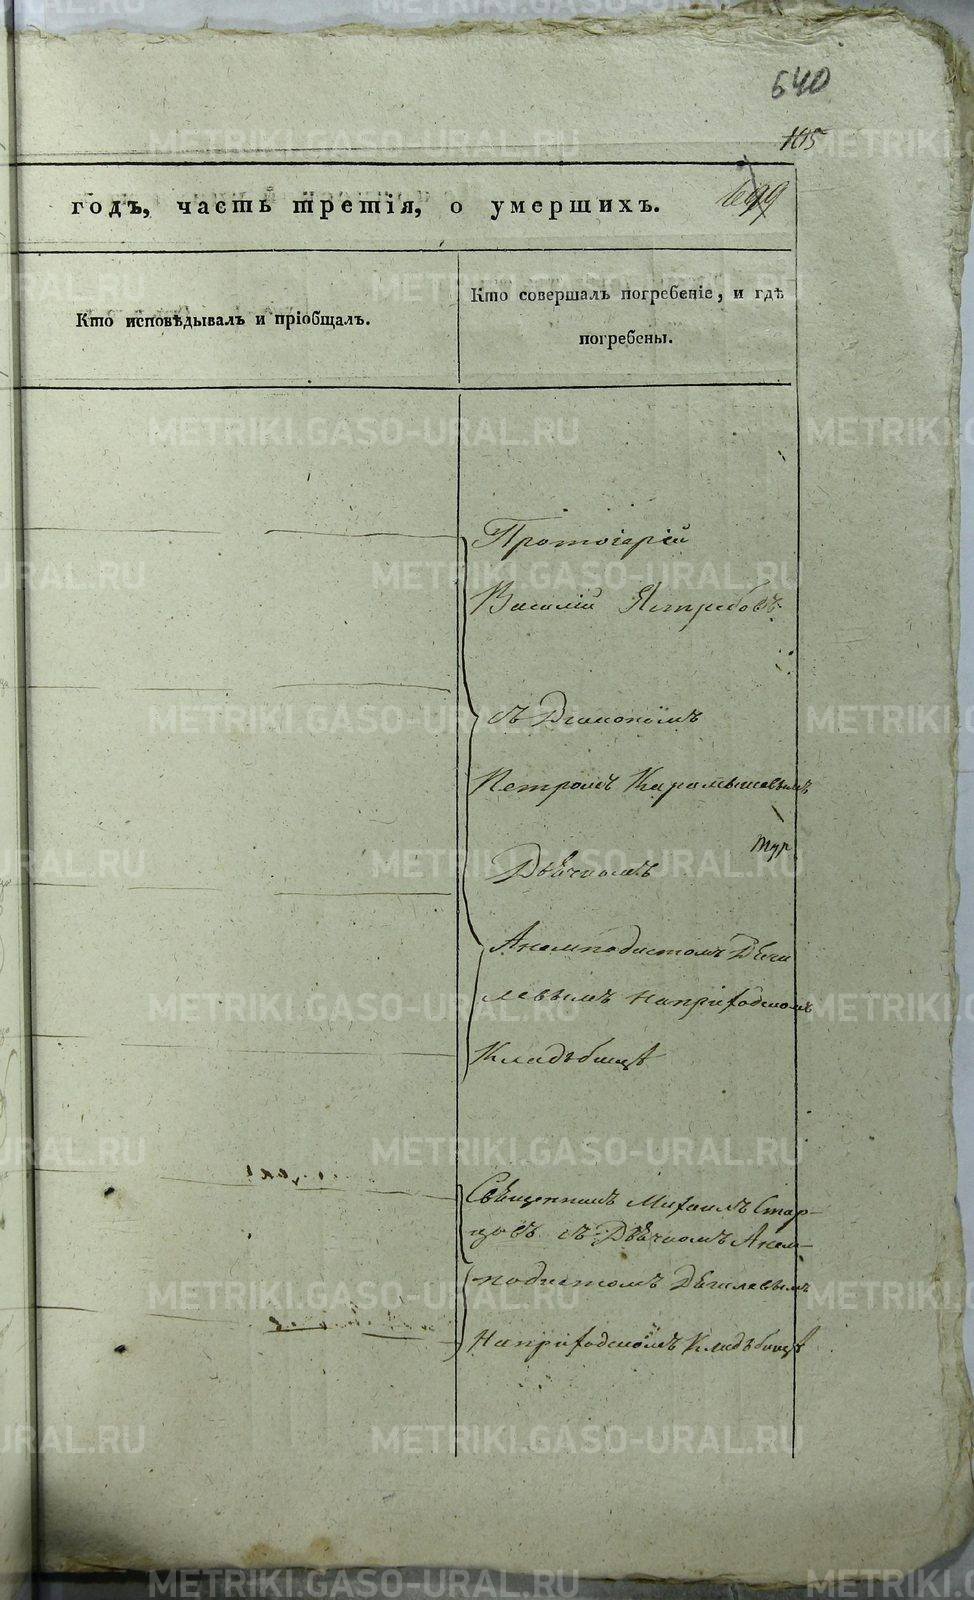 640
105
699
годъ, часть третія, о умершихъ.
Кто исповѣдывалъ и пріобщалъ.
Кто совершалъ погребеніе, и гдѣ
погребены.
Протоіерій
Василій Ястребовъ
съ Діакономъ
Петромъ Карамышевымъ
Дьячкомъ
Анемподистомъ
левымъ на приходскомъ
Кладъбищѣ
Священникъ Михаилъ Стар-
цовъ съ Дьячкомъ Анем-
подистомъ
На приходскомъ Кладъбищѣ
METRIKI.GASO-URAL.RU